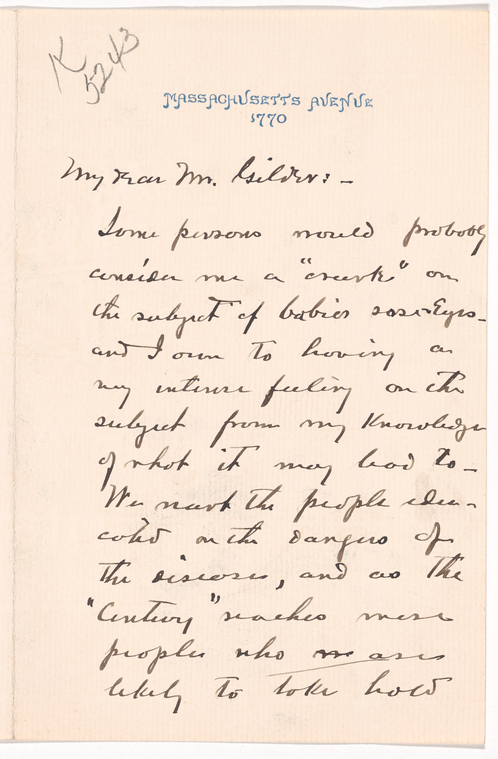 K
5243
MASSACHUSETTS AVENUE
1770
My dear Mr. Gilder: -
Some persons would probably
consider me a "crank" on
the subject of babies sore Eyes -
and I own to having a
very intense feeling on the
subject from my Knowledge
of what it may lead to -
We want the people edu-
cated on the dangers of
the disease, and as the
"Century" reaches more
people who are
likely to take hold